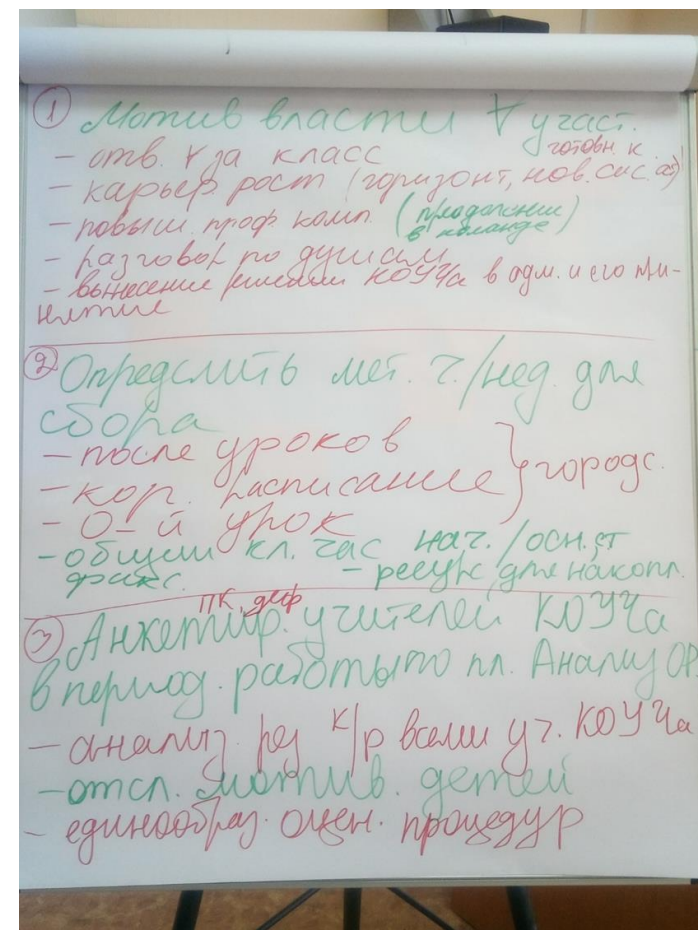 ① Мотив власти ∀ участ.
- отв. ∀ за класс готовн к
- карьер. рост (горизонт, нов. сис.
- повыш. проф. комп. (продвижение
в команде)
- разговор по душам
- вынесение решений КОУЧа в адм. и его при-
нятие
② Определить мет. ч./нед. для
сбора
- после уроков
- кор. расписание } городс.
- 0-й урок
- общий кл. час нач./осн. ст
фикс. - ресурс для накопл.
ПК, деф
③ Анкетир. учителей КОУЧа
в период. работы по пл. Анализ ОР
- анализ рез к/р всеми уч. КОУЧа
- отсл. мотив. детей
- единообраз. оцен. процедур